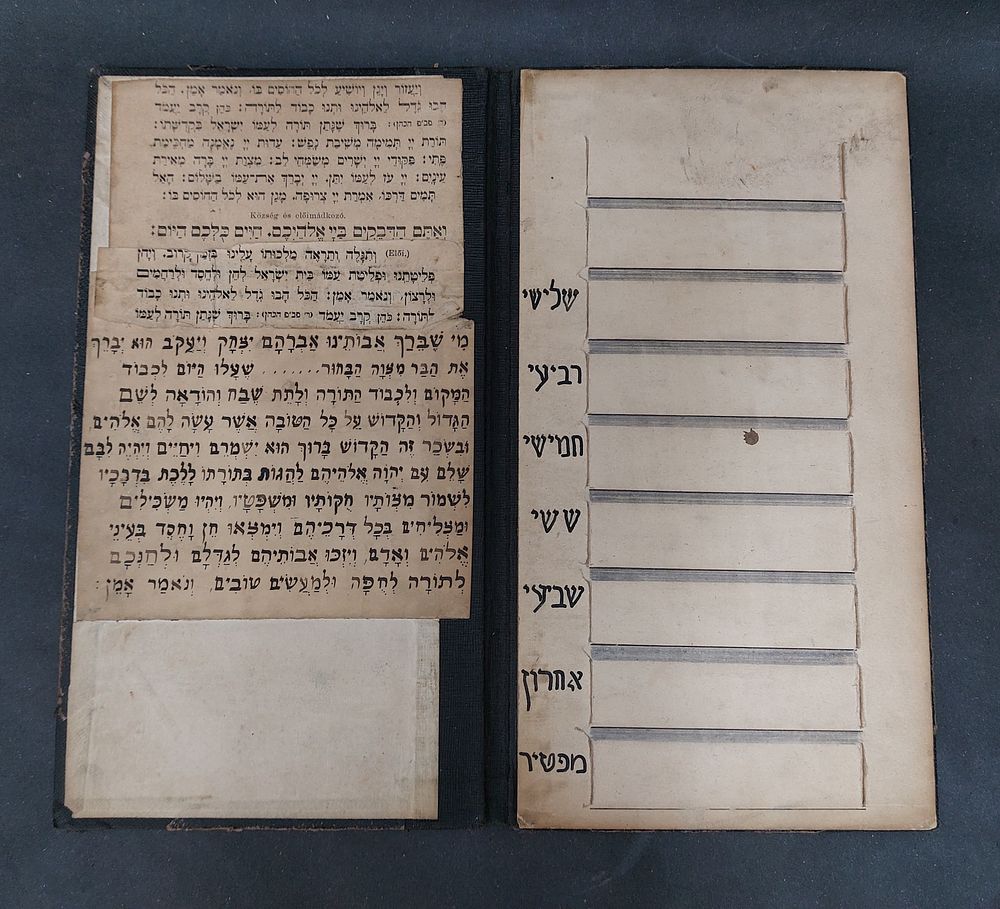 וְיַעֲזוֹר וְיָגֵן וְיוֹשִׁיעַ לְכֹל הַחוֹסִים בּוֹ. וְנֹאמַר אָמֵן. הַכֹּל
הָבוּ גֹדֶל לֵאלֹהֵינוּ וּתְנוּ כָבוֹד לַתּוֹרָה: כֹּהֵן קְרָב יַעֲמֹד
(ר׳ פב״פ הכהן): בָּרוּךְ שֶׁנָּתַן תּוֹרָה לְעַמּוֹ יִשְׂרָאֵל בִּקְדֻשָּׁתוֹ:
תּוֹרַת יְיָ תְּמִימָה מְשִׁיבַת נָפֶשׁ: עֵדוּת יְיָ נֶאֱמָנָה מַחְכִּימַת
פֶּתִי: פִּקּוּדֵי יְיָ יְשָׁרִים מְשַׂמְּחֵי לֵב: מִצְוַת יְיָ בָּרָה מְאִירַת
עֵינָיִם: יְיָ עֹז לְעַמּוֹ יִתֵּן. יְיָ יְבָרֵךְ אֶת־עַמּוֹ בַשָּׁלוֹם: הָאֵל
תָּמִים דַּרְכּוֹ. אִמְרַת יְיָ צְרוּפָה. מָגֵן הוּא לְכֹל הַחוֹסִים בּוֹ:
Község és előimádkozó.
וְאַתֶּם הַדְּבֵקִים בַּיְיָ אֱלֹהֵיכֶם. חַיִּים כֻּלְּכֶם הַיּוֹם:
(Elői.) וְתִגָּלֶה וְתֵרָאֶה מַלְכוּתוֹ עָלֵינוּ בִּזְמַן קָרוֹב. וְיָחֹן
פְּלֵיטָתֵנוּ וּפְלֵיטַת עַמּוֹ בֵּית יִשְׂרָאֵל לְחֵן וּלְחֶסֶד וּלְרַחֲמִים
וּלְרָצוֹן. וְנֹאמַר אָמֵן: הַכֹּל הָבוּ גֹדֶל לֵאלֹהֵינוּ וּתְנוּ כָבוֹד
לַתּוֹרָה: כֹּהֵן קְרָב יַעֲמֹד (ר׳ פב״פ הכהן): בָּרוּךְ שֶׁנָּתַן תּוֹרָה לְעַמּוֹ
מִי שֶׁבֵּרַךְ אֲבוֹתֵינוּ אַבְרָהָם יִצְחָק וְיַעֲקֹב הוּא יְבָרֵךְ
אֶת הַבַּר מִצְוָה הַבָּחוּר....... שֶׁעָלוּ הַיּוֹם לִכְבוֹד
הַמָּקוֹם וְלִכְבוֹד הַתּוֹרָה וְלָתֵת שֶׁבַח וְהוֹדָאָה לְשֵׁם
הַגָּדוֹל וְהַקָּדוֹשׁ עַל כָּל הַטּוֹבָה אֲשֶׁר עָשָׂה לָהֶם אֱלֹהִים
וּבִשְׂכַר זֶה הַקָּדוֹשׁ בָּרוּךְ הוּא יִשְׁמְרֵם וִיחַיֵּים וְיִהְיֶה לְבָבָם
שָׁלֵם עִם יְהוָה אֱלֹהֵיהֶם לַהֲגוֹת בְּתוֹרָתוֹ לָלֶכֶת בִּדְרָכָיו
לִשְׁמוֹר מִצְוֹתָיו חֻקּוֹתָיו וּמִשְׁפָּטָיו, וְיִהְיוּ מַשְׂכִּילִים
וּמַצְלִיחִים בְּכָל דַּרְכֵיהֶם וְיִמְצְאוּ חֵן וָחֶסֶד בְּעֵינֵי
אֱלֹהִים וְאָדָם, וְיִזְכּוּ אֲבוֹתֵיהֶם לְגַדְּלָם וּלְחַנְּכָם
לְתוֹרָה לְחֻפָּה וּלְמַעֲשִׂים טוֹבִים, וְנֹאמַר אָמֵן:
שלישי
רביעי
חמישי
ששי
שביעי
אחרון
מפטיר